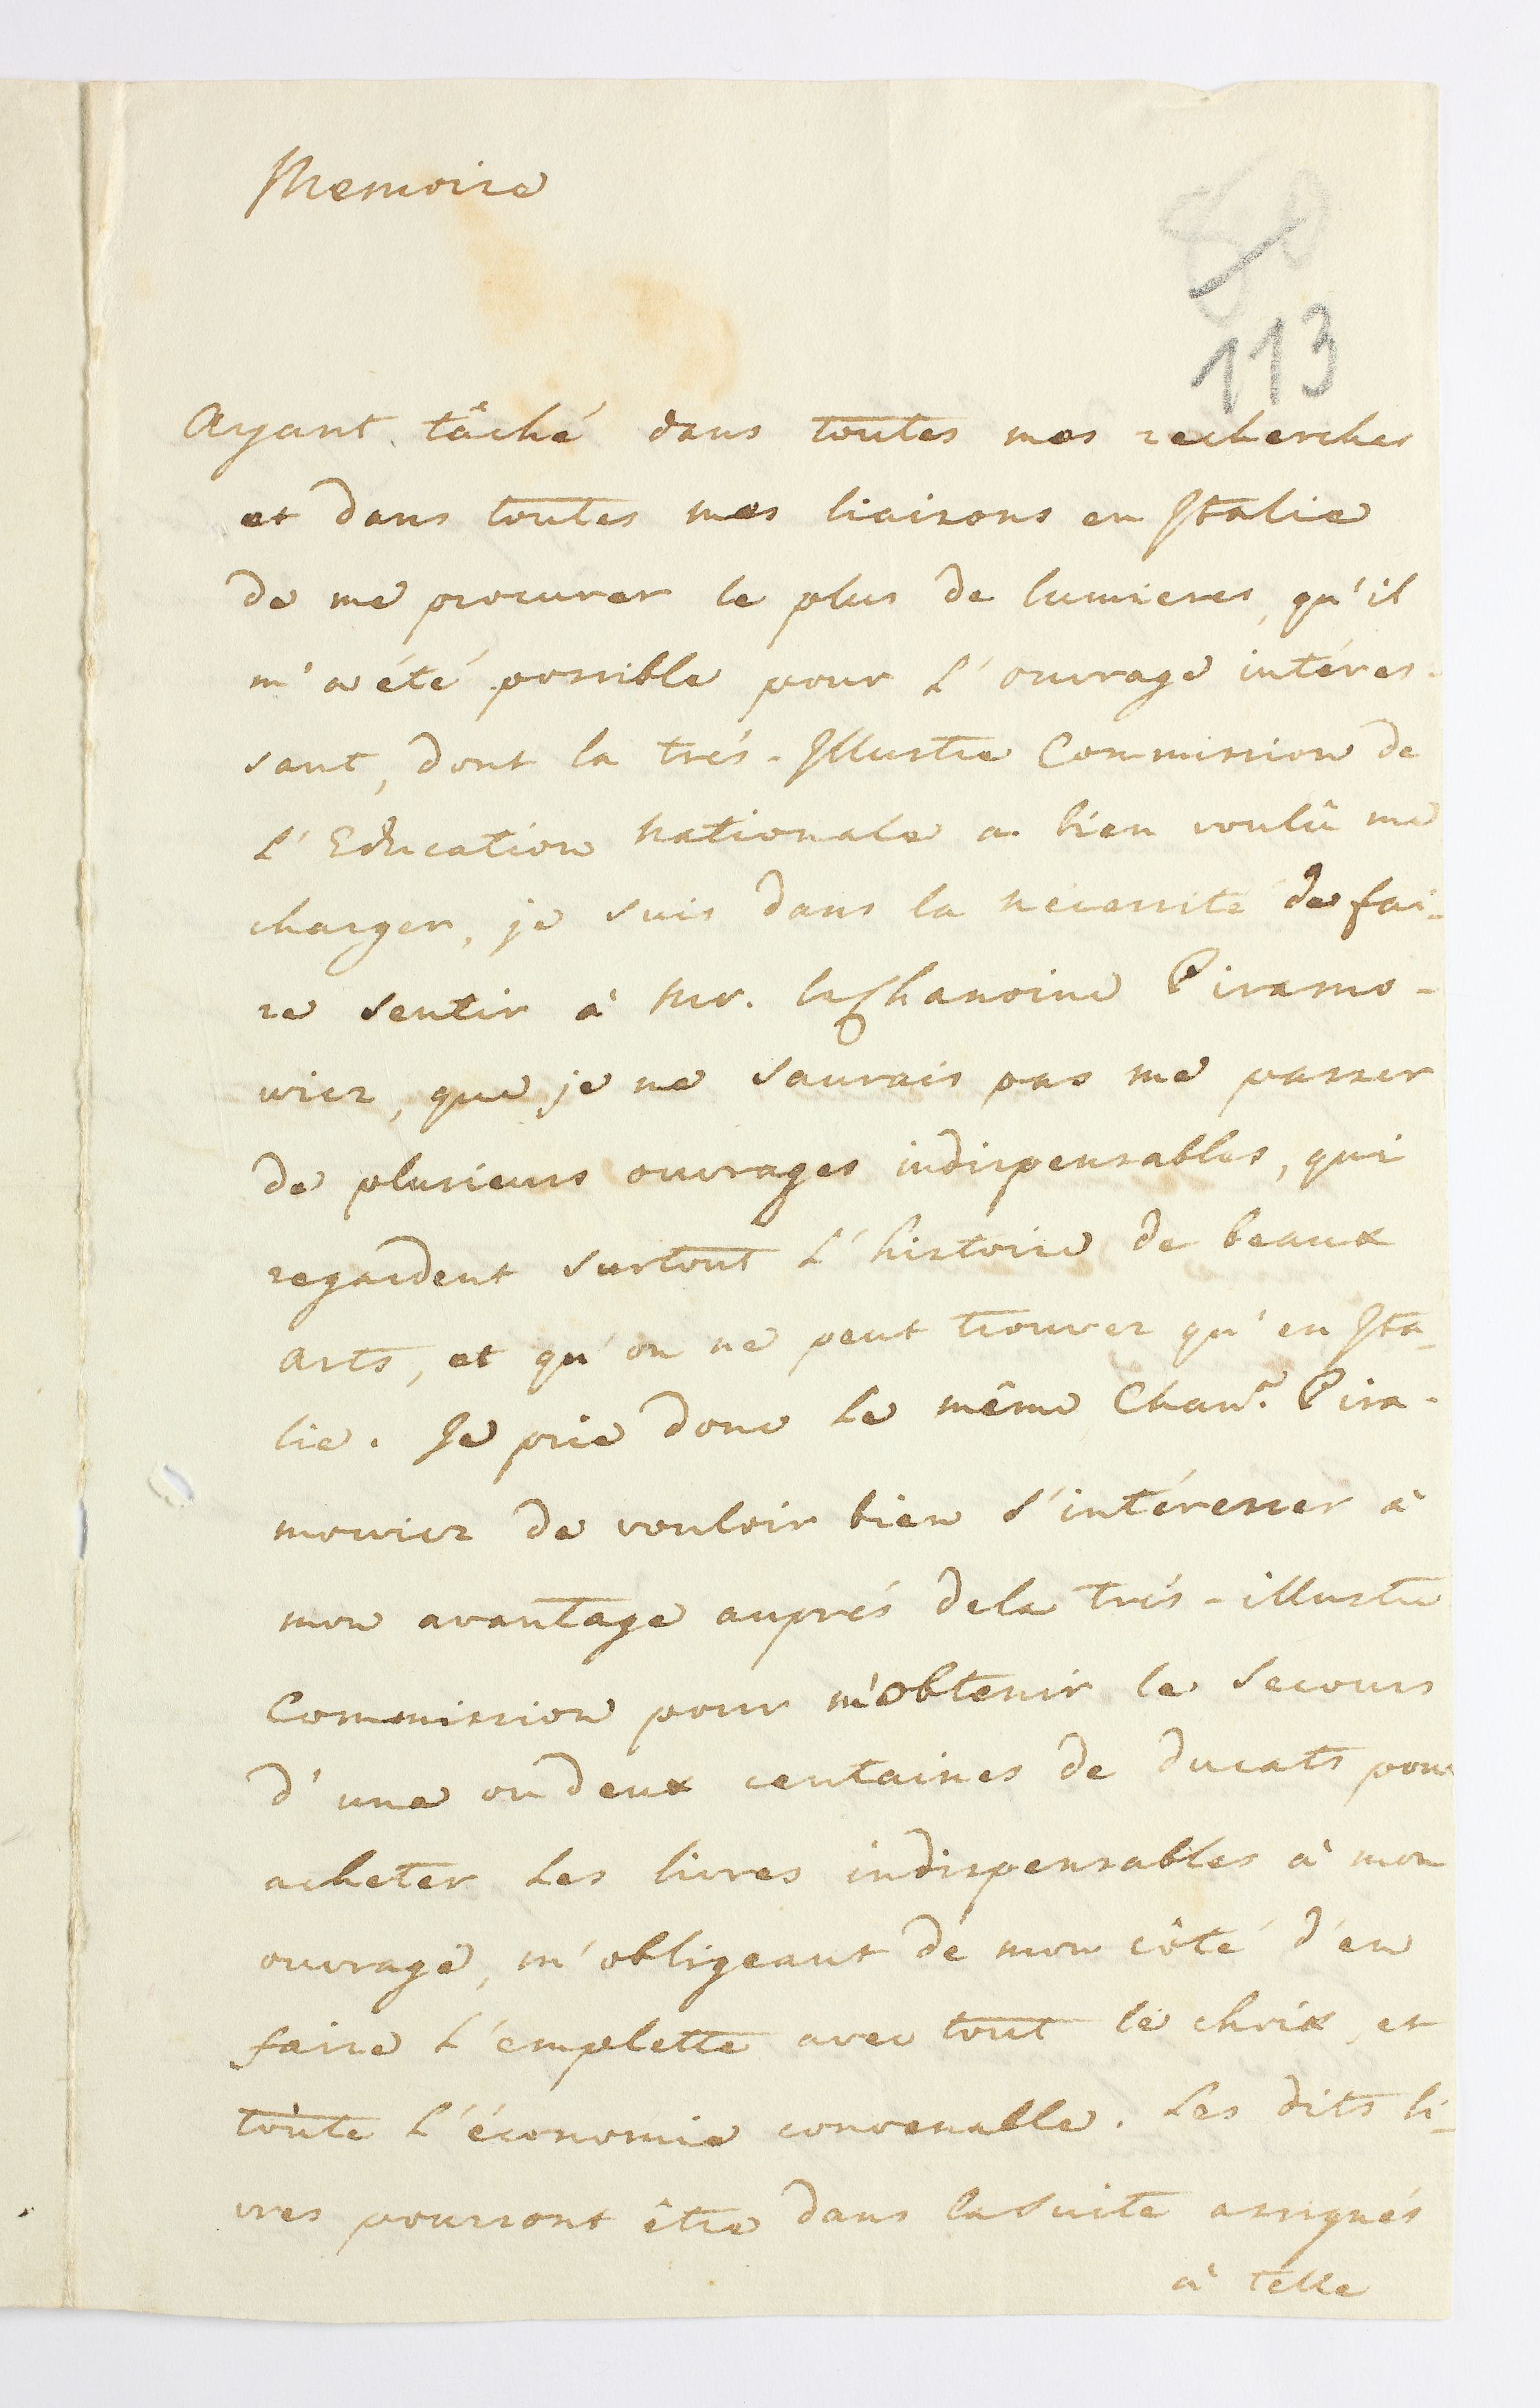 Memoire
80
113
Ayant tâché dans toutes mes recherches
et dans toutes mes liaisons en Italie
de me procurer le plus de lumieres, qu'il
m'a été possible pour l'ouvrage intéres-
sant, dont la trés-Illustre Commission de
l'Education Nationale a bien voulû me
charger, je suis dans la necessité de fai-
re sentir à Mr. le Chanoine Piramo-
wicz, que je ne saurais pas me passer
de plusieurs ouvrages indispensables, qui
regardent surtout l'histoire de beaux
arts, et qu'on ne peut trouver qu'en Ita-
lie. Je prie donc le même Chane. Pira-
mowicz de vouloir bien s'intéresser à
mon avantage auprés dela trés-illustre
Commission pour m'obtenir le secours
d'une ou deux centaines de ducats pour
acheter les livres indispensables à mon
ouvrage, m'obligeant de mon côté d'en
faire l'emplette avec tout le choix, et
toute l'économie convenable. Les dits li-
vres pourront être dans la suite assignés
à telle